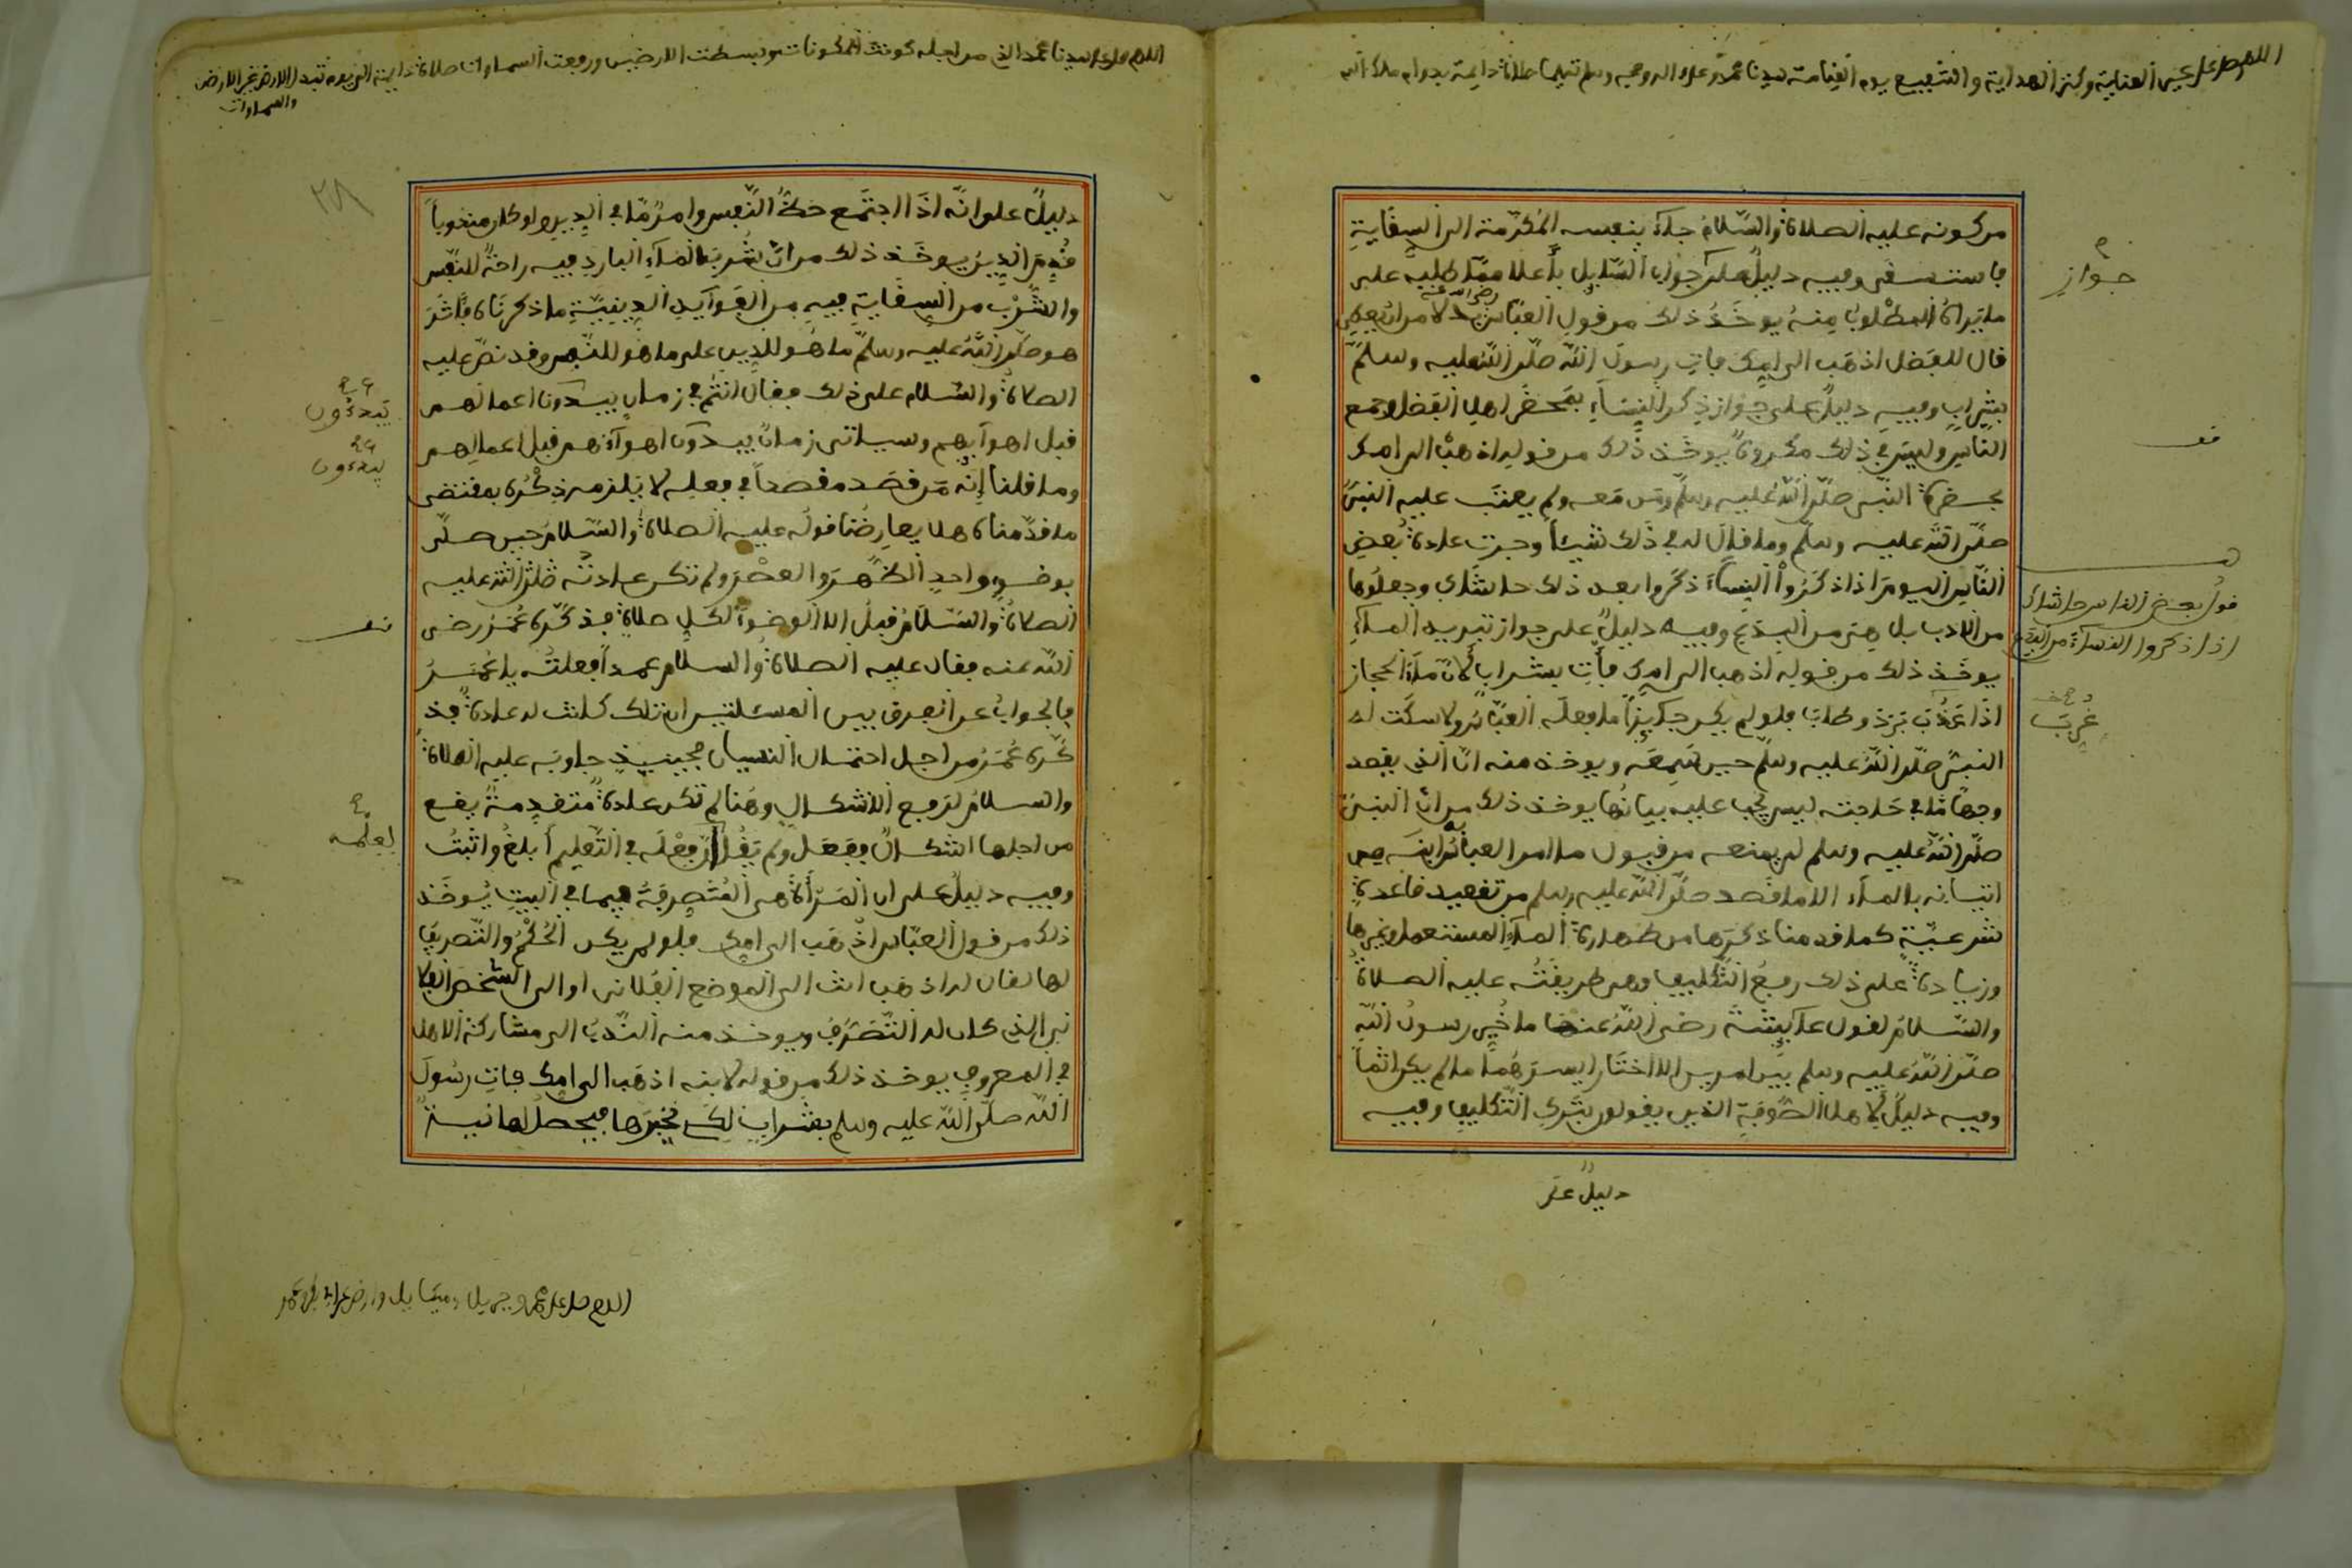 اللهم صل على عين العناية وكنز الهداية والشفيع يوم القيامة سيدنا محمد وعلى اله وصحبه وسلم تسليما صلاة دائمة بدوام ملك الله
من كونه عليه الصلاة والسّلام جاء بنفسه المكرّمة الى السِقايةِ
فاستسقى وفيه دليلٌ على جواب السّايل بأعلا ممّا طلبه على
ما يَراهُ المطلوبُ مِنهُ يوخَذُ ذلك من قول العبّاس رضي الله عنه بدلا من ان يعطي
قال للفضل اذهَب الى امك فاتِ رسولَ الله صلّى اللهُ عليه وسلمّ
بِشرابٍ وفيهِ دليلٌ على جَوازِ ذِكر النِساءِ بمَحضَرِ اهلِ الفضلِ وجمع
النّاسِ وليسَ في ذلك مكروهٌ يوخَذ ذلك من قولِهِ اذهبْ الى امك
بحضرةِ النّبي صلّى اللهُ عليه وسلّم ومَن مَعه ولم يعتَب عليه النبيُّ
صلّى الله عليه وسلّم وما قالَ له في ذلك شيئاً وجرت عادة بعضِ
النّاسِ اليومَ اذا ذكَرُوا النِساءَ ذكروا بعد ذلك حاشاك وجعلُوها
من الادب بل هِيَ من البِدَعِ وفيه دليلٌ على جواز تبريد الماءِ
يوخَذ ذلك من قوله اذهب الى امك فأتِ بشراب لأنّ ماءَ الحجاز
اذا غُرِّبَ بَرَدَ وطابَ فلو لم يكن جايزاً ما فعلَه العبّاسُ ولا سكَت له
النبىّ صلّى اللهُ عليه وسلّم حين سَمِعَه ويوخذ منه انّ الذي يقصد
وجهاً مّا في حَاجته ليس يجب عليه بيانُها يوخذ ذلك من انّ النبىَّ
صلّى اللهُ عليه وسلم لم يمنعه من قبول ما امر العباسُ به ابنَه من
اتيانه بالماء الا ما قصد صلّى اللهُ عليه وسلم من تقعيد قاعدةٍ
شرعيّةٍ كما قدمنا ذكرَها من طهارة الماءِ المستعمل وغيرها
وزيادةً على ذلك رفعُ التّكليف وهى طريقَتُه عليه الصلاةُ
والسّلامُ لقول عايشة رضي اللهُ عنها ما خُيِّر رسولُ اللهِ
صلّى اللهُ عليه وسلم بين امرين الا اختَار ايسرَهُما ما لم يكن اثماً
وفيه دليلٌ لأهل الصُّوفيّةِ الذين يقولون بتركِ التّكليفِ وفيه
دليلٌ على
جوازِ
قف
قولُ بعضِ الناسِ حاشاك
اذا ذكروا النساءَ من البدَعِ
غُرِّبَ
اللهم صل على سيدنا محمد الذي من اجله كونت المكونات وبسطت الارضين ورفعت السماوات صلاة دايمة الى يوم تبدل الارض غير الارض
والسماوات
٢٨
دليلٌ على انّه اذَا اجتمع حظُّ النّفس وامرٌ مّا في الدِين ولو كان مندوباً
قُدِمَ الدِينُ يوخَذ ذلك من انّ شُربَ الماءِ البارد فيه راحةٌ للنفّس
والشُّرْبُ من السِقايةِ فيهِ من الفَوايدِ الدِينيّةِ ما ذكرنَاه فآثَرَ
هو صلّى اللهُ عليه وسلّم ما هُو للدِينِ على ما هُو للنّفس وقد نصّ عليه
الصلاةُ والسّلام على ذلك فقال انتُم في زمانٍ يبدون اعمالهم
قبل اهوآيهم وسياتي زمانٌ يبدون اهوآءَهم قبل اعمالِهم
وما قلنا إنّه مَن قصَد مقصداً في فعلِه لا يَلزمه ذِكْرُه بمقتضى
ما قدّمناه هل يعارِضُنا قولُه عليه الصلاةُ والسّلامُ حين صلّى
بوضوءٍ واحدٍ الظُّهرَ والعصْرَ ولم تكن عادتُه صلّى الله عليه
الصلاةُ والسّلامُ قبلُ الا الوضوءَ لكلِ صلاةٍ فذكّرهُ عُمَرُ رضي
اللهُ عنه فقال عليه الصلاةُ والسلام عمداً فعلتُه يا عُمَرُ
فالجوابُ عن الفرق بين المسئلتين ان تلك كانت له عادةٌ فذ
كّرهُ عُمَرُ من اجل احتمال النسيان فحينيذٍ جاوبَه عليه الصلاةُ
والسلامُ لرفع الاشكالِ وهُنا لم تكن عادةٌ متقدِمةٌ يقع
من اجلها اشكالٌ ففَعَل ولم يَقُل لأنّ فِعْلَه في التّعليمِ أبلغُ واثبَتُ
وفيه دليلٌ على ان المَرأَةَ هي المُتَصرِفَةُ فيما في البيتِ يُوخَذ
ذلك من قول العبّاس اذهَب الى امك فلو لم يكن الحُكْمُ والتّصريفُ
لها لقال له اذهَب انت الى الموضع الفُلاني او الى الشّخصِ الفلا
ني الذي كان له التّصَرُفُ ويوخذ منه النّدبُ الى مشاركة الاهل
في المعروفِ يوخذ ذلك من قوله لابنِه اذهَب الى امك فاتِ رسُولَ
اللهِ صلّى الله عليه وسلم بشرابٍ لِكَي يخبرَها فيحصلُ لها نيةً
يَبدءُون
يبدءُون
قف
اللهم صل على محمد وجبريل وميكايل